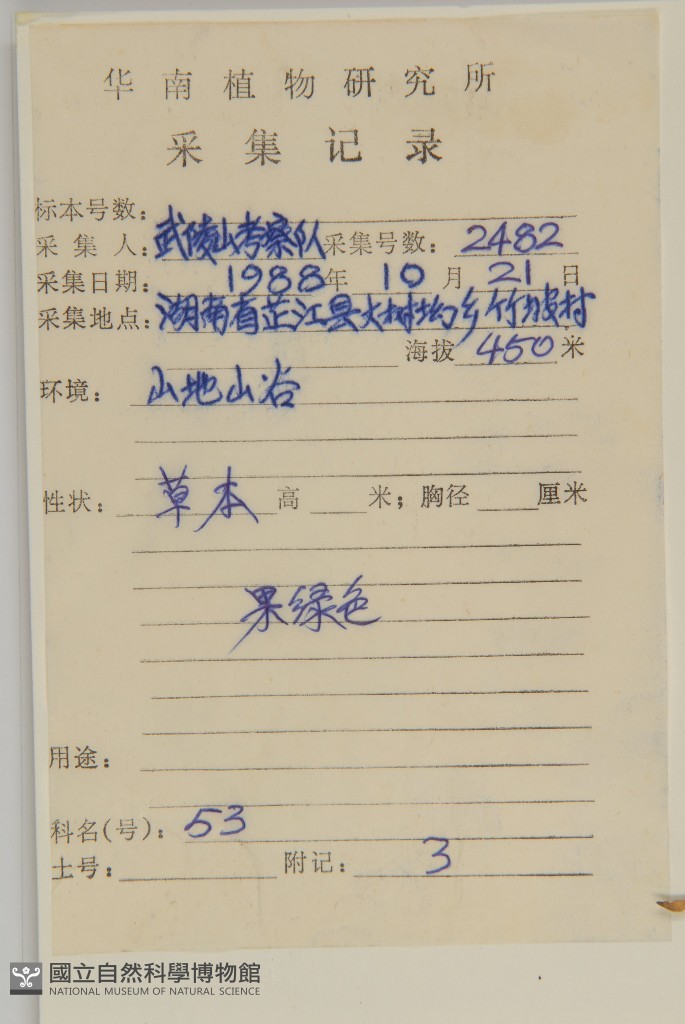 华南植物研究所
采集记录
标本号数:
采集人: 武陵山考察队 采集号数: 2482
采集日期: 1988年 10月 21日
采集地点: 湖南省芷江县大树坳乡竹坡村
海拔 450 米
环境: 山地山谷
性状: 草本 高 米; 胸径 厘米
果绿色
用途:
科名(号): 53
土号: 附记: 3
國立自然科學博物館
NATIONAL MUSEUM OF NATURAL SCIENCE